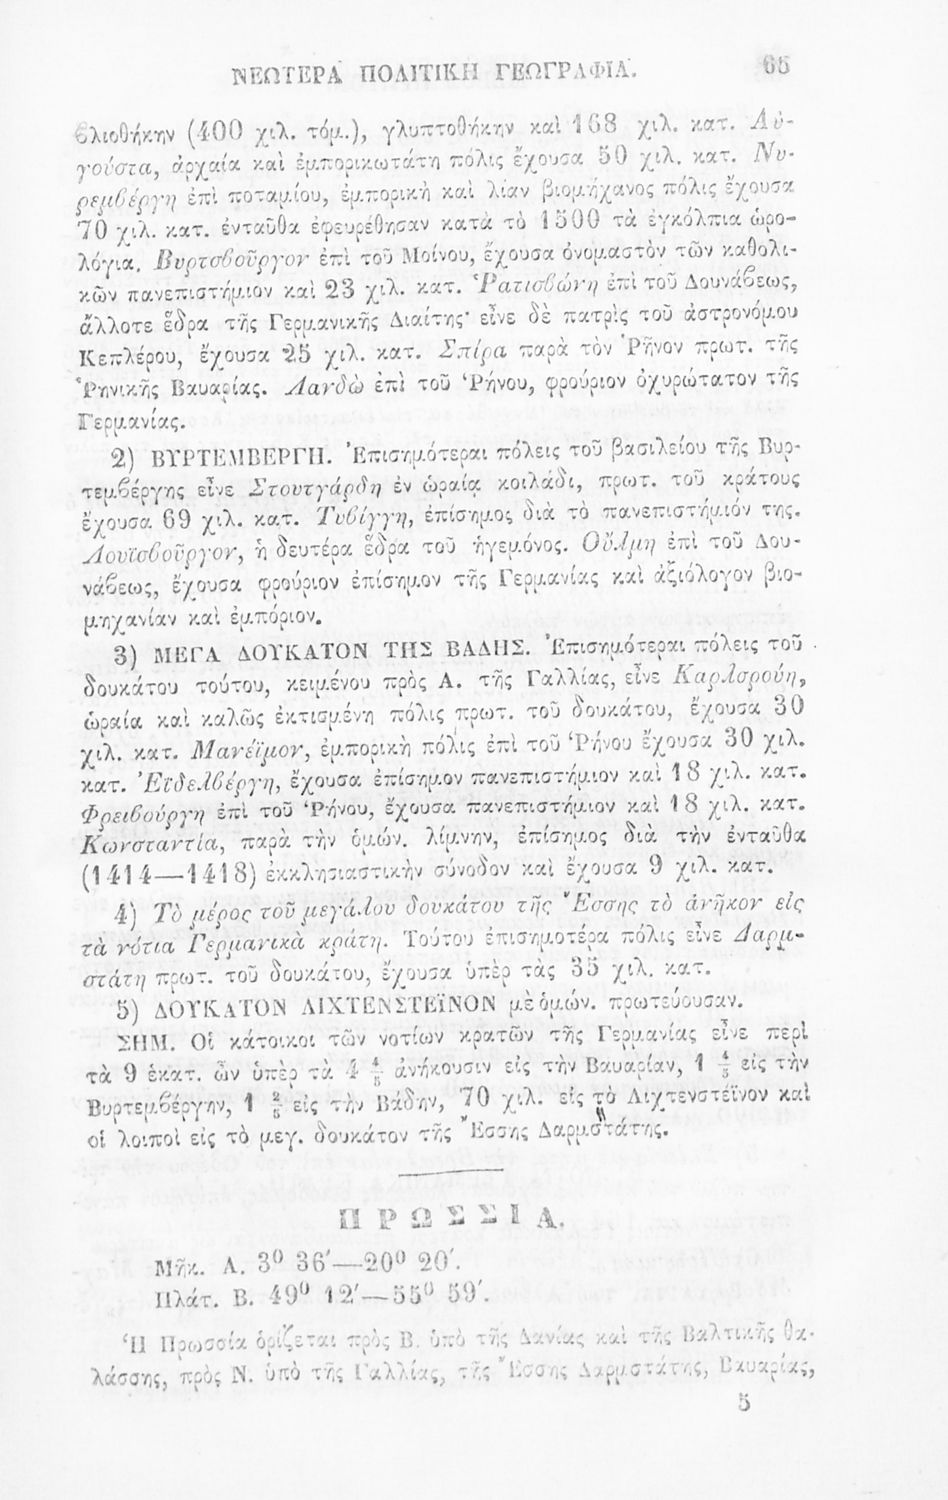 ΝΕΩΤΕΡΑ ΠΟΛΙΤΙΚΗ ΓΕΩΓΡΑΦΙΑ. 65
βλιοθήκην (400 χιλ. τόμ.), γλυπτοθήκην καὶ 168 χιλ. κατ. Αὐ-
γούστα, ἀρχαία καὶ ἐμπορικωτάτη πόλις ἔχουσα 50 χιλ. κατ. Νυ-
ρεμβέργη ἐπὶ ποταμίου, ἐμπορικὴ καὶ λίαν βιομήχανος πόλις ἔχουσα
70 χιλ. κατ. ἐνταῦθα ἐφευρέθησαν κατὰ τὸ 1500 τὰ ἐγκόλπια ὡρο-
λόγια. Βυρτσβοῦργον ἐπὶ τοῦ Μοίνου, ἔχουσα ὀνομαστὸν τῶν καθολι-
κῶν πανεπιστήμιον καὶ 23 χιλ. κατ. Ῥατισβώνη ἐπὶ τοῦ Δουνάβεως,
ἄλλοτε ἕδρα τῆς Γερμανικῆς Διαίτης· εἶνε δὲ πατρὶς τοῦ ἀστρονόμου
Κεπλέρου, ἔχουσα 25 χιλ. κατ. Σπίρα παρὰ τὸν Ῥῆνον πρωτ. τῆς
Ῥηνικῆς Βαυαρίας. Λανδὼ ἐπὶ τοῦ Ῥήνου, φρούριον ὀχυρώτατον τῆς
Γερμανίας.
2) ΒΥΡΤΕΜΒΕΡΓΗ. Ἐπισημότεραι πόλεις τοῦ βασιλείου τῆς Βυρ-
τεμβέργης εἶνε Στουτγάρδη ἐν ὡραίᾳ κοιλάδι, πρωτ. τοῦ κράτους
ἔχουσα 69 χιλ. κατ. Τυβίγγη, ἐπίσημος διὰ τὸ πανεπιστήμιόν της.
Λουϊσβοῦργον, ἡ δευτέρα ἕδρα τοῦ ἡγεμόνος. Οὔλμη ἐπὶ τοῦ Δου-
νάβεως, ἔχουσα φρούριον ἐπίσημον τῆς Γερμανίας καὶ ἀξιόλογον βιο-
μηχανίαν καὶ ἐμπόριον.
3) ΜΕΓΑ ΔΟΥΚΑΤΟΝ ΤΗΣ ΒΑΔΗΣ. Ἐπισημότεραι πόλεις τοῦ
δουκάτου τούτου, κειμένου πρὸς Α. τῆς Γαλλίας, εἶνε Καρλσρούη,
ὡραία καὶ καλῶς ἐκτισμένη πόλις πρωτ. τοῦ δουκάτου, ἔχουσα 30
χιλ. κατ. Μανέϊμον, ἐμπορικὴ πόλις ἐπὶ τοῦ Ῥήνου ἔχουσα 30 χιλ.
κατ. Ἐϊδελβέργη, ἔχουσα ἐπίσημον πανεπιστήμιον καὶ 18 χιλ. κατ.
Φρειβούργη ἐπὶ τοῦ Ῥήνου, ἔχουσα πανεπιστήμιον καὶ 18 χιλ. κατ.
Κωνσταντία, παρὰ τὴν ὁμών. λίμνην, ἐπίσημος διὰ τὴν ἐνταῦθα
(1414—1418) ἐκκλησιαστικὴν σύνοδον καὶ ἔχουσα 9 χιλ. κατ.
4) Τὸ μέρος τοῦ μεγάλου δουκάτου τῆς Ἕσσης τὸ ἀνῆκον εἰς
τὰ νότια Γερμανικὰ κράτη. Τούτου ἐπισημοτέρα πόλις εἶνε Δαρμ-
στάτη πρωτ. τοῦ δουκάτου, ἔχουσα ὑπὲρ τὰς 35 χιλ. κατ.
5) ΔΟΥΚΑΤΟΝ ΛΙΧΤΕΝΣΤΕΪΝΟΝ μὲ ὁμών. πρωτεύουσαν.
ΣΗΜ. Οἱ κάτοικοι τῶν νοτίων κρατῶν τῆς Γερμανίας εἶνε περὶ
τὰ 9 ἑκατ. ὧν ὑπὲρ τὰ 4 4/5 ἀνήκουσιν εἰς τὴν Βαυαρίαν, 1 4/5 εἰς τὴν
Βυρτεμβέργην, 1 2/5 εἰς τὴν Βάδην, 70 χιλ. εἰς τὸ Λιχτενστέϊνον καὶ
οἱ λοιποὶ εἰς τὸ μεγ. δουκάτον τῆς Ἕσσης Δαρμστάτης.
ΠΡΩΣΣΙΑ.
Μῆκ. Α. 3⁰ 36′—20⁰ 20′.
Πλάτ. Β. 49⁰ 12′—55⁰ 59′.
Ἡ Πρωσσία ὁρίζεται πρὸς Β. ὑπὸ τῆς Δανίας καὶ τῆς Βαλτικῆς θα-
λάσσης, πρὸς Ν. ὑπὸ τῆς Γαλλίας, τῆς Ἕσσης Δαρμστάτης, Βαυαρίας,
5